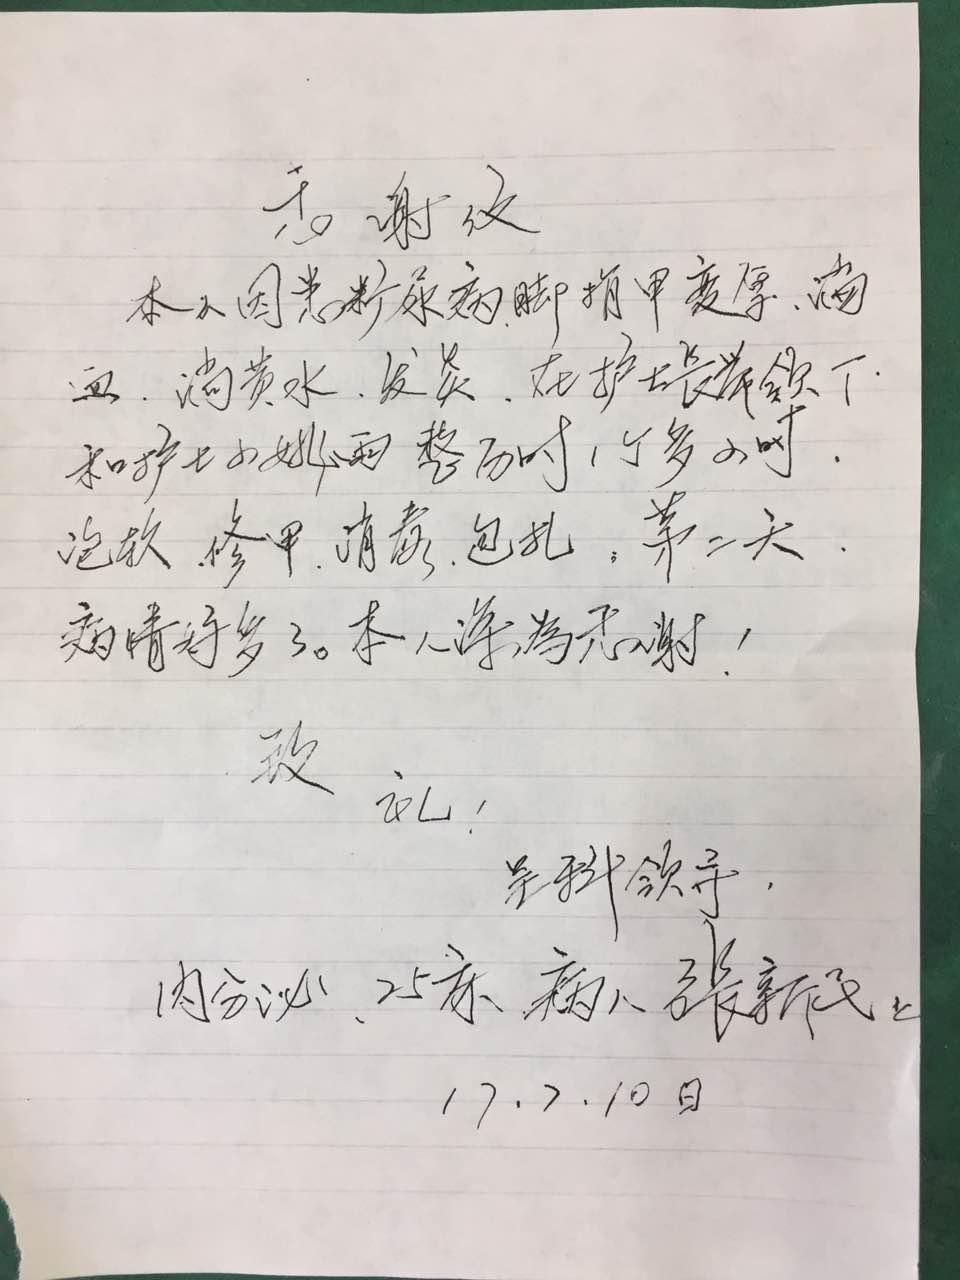 感谢仪
本人因患糖尿病、脚指甲变厚、淌
血、淌黄水、发炎、在护士长带领下
和护士小姚、雨整历时1个多小时.
泡软、修甲、消毒、包扎；第二天.
病情好多了。本人深为感谢！
致
礼！
呈科领导.
内分泌、25床、病人 張新民 上
17.7.10日